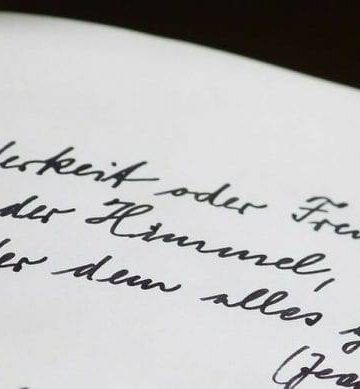 erkeit oder Freu
der Himmel,
der dem alles
(Jea